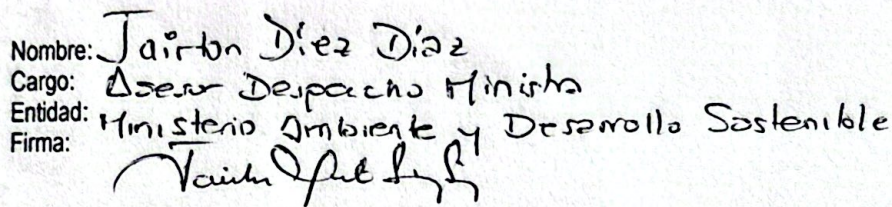 Nombre: Jairton Díez Díaz
Cargo: Asesor Despacho Ministro
Entidad: Ministerio Ambiente y Desarrollo Sostenible
Firma: